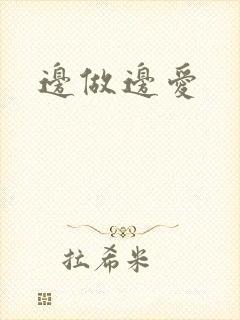 邊做邊愛
拉希米